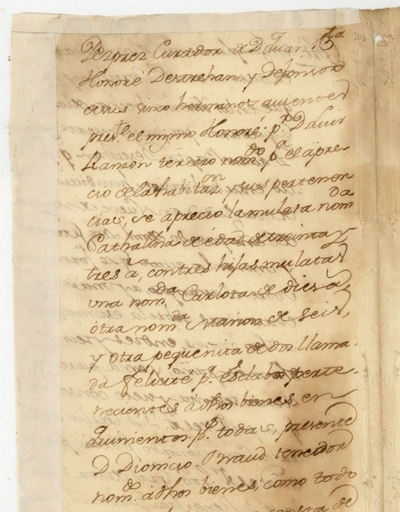 Desprez Curador de D.n Juan B.ta
Honoré Desarehan, y Defensor
de sus sinco hermanos ausentes
pres.te el mismo Honoré, p.r D.n Luis
Ramon tercero nom.do p.a el apre-
cio de la habitaz.on y sus pertenen
cias, se apreció la mulata nom.da
Cathalina de edad de treinta y
tres a.s con tres hijas mulatas
una nom.da Carlota de diez a.s
otra nom.da Manon de seis,
y otra pequeñita de dos llama-
da Felicité p.r esclabas perte-
necientes a dhos bienes, en
quinientos p.s todas, presente
D. Dionicio Braud tenedor
nom.do a dhos bienes, como todo